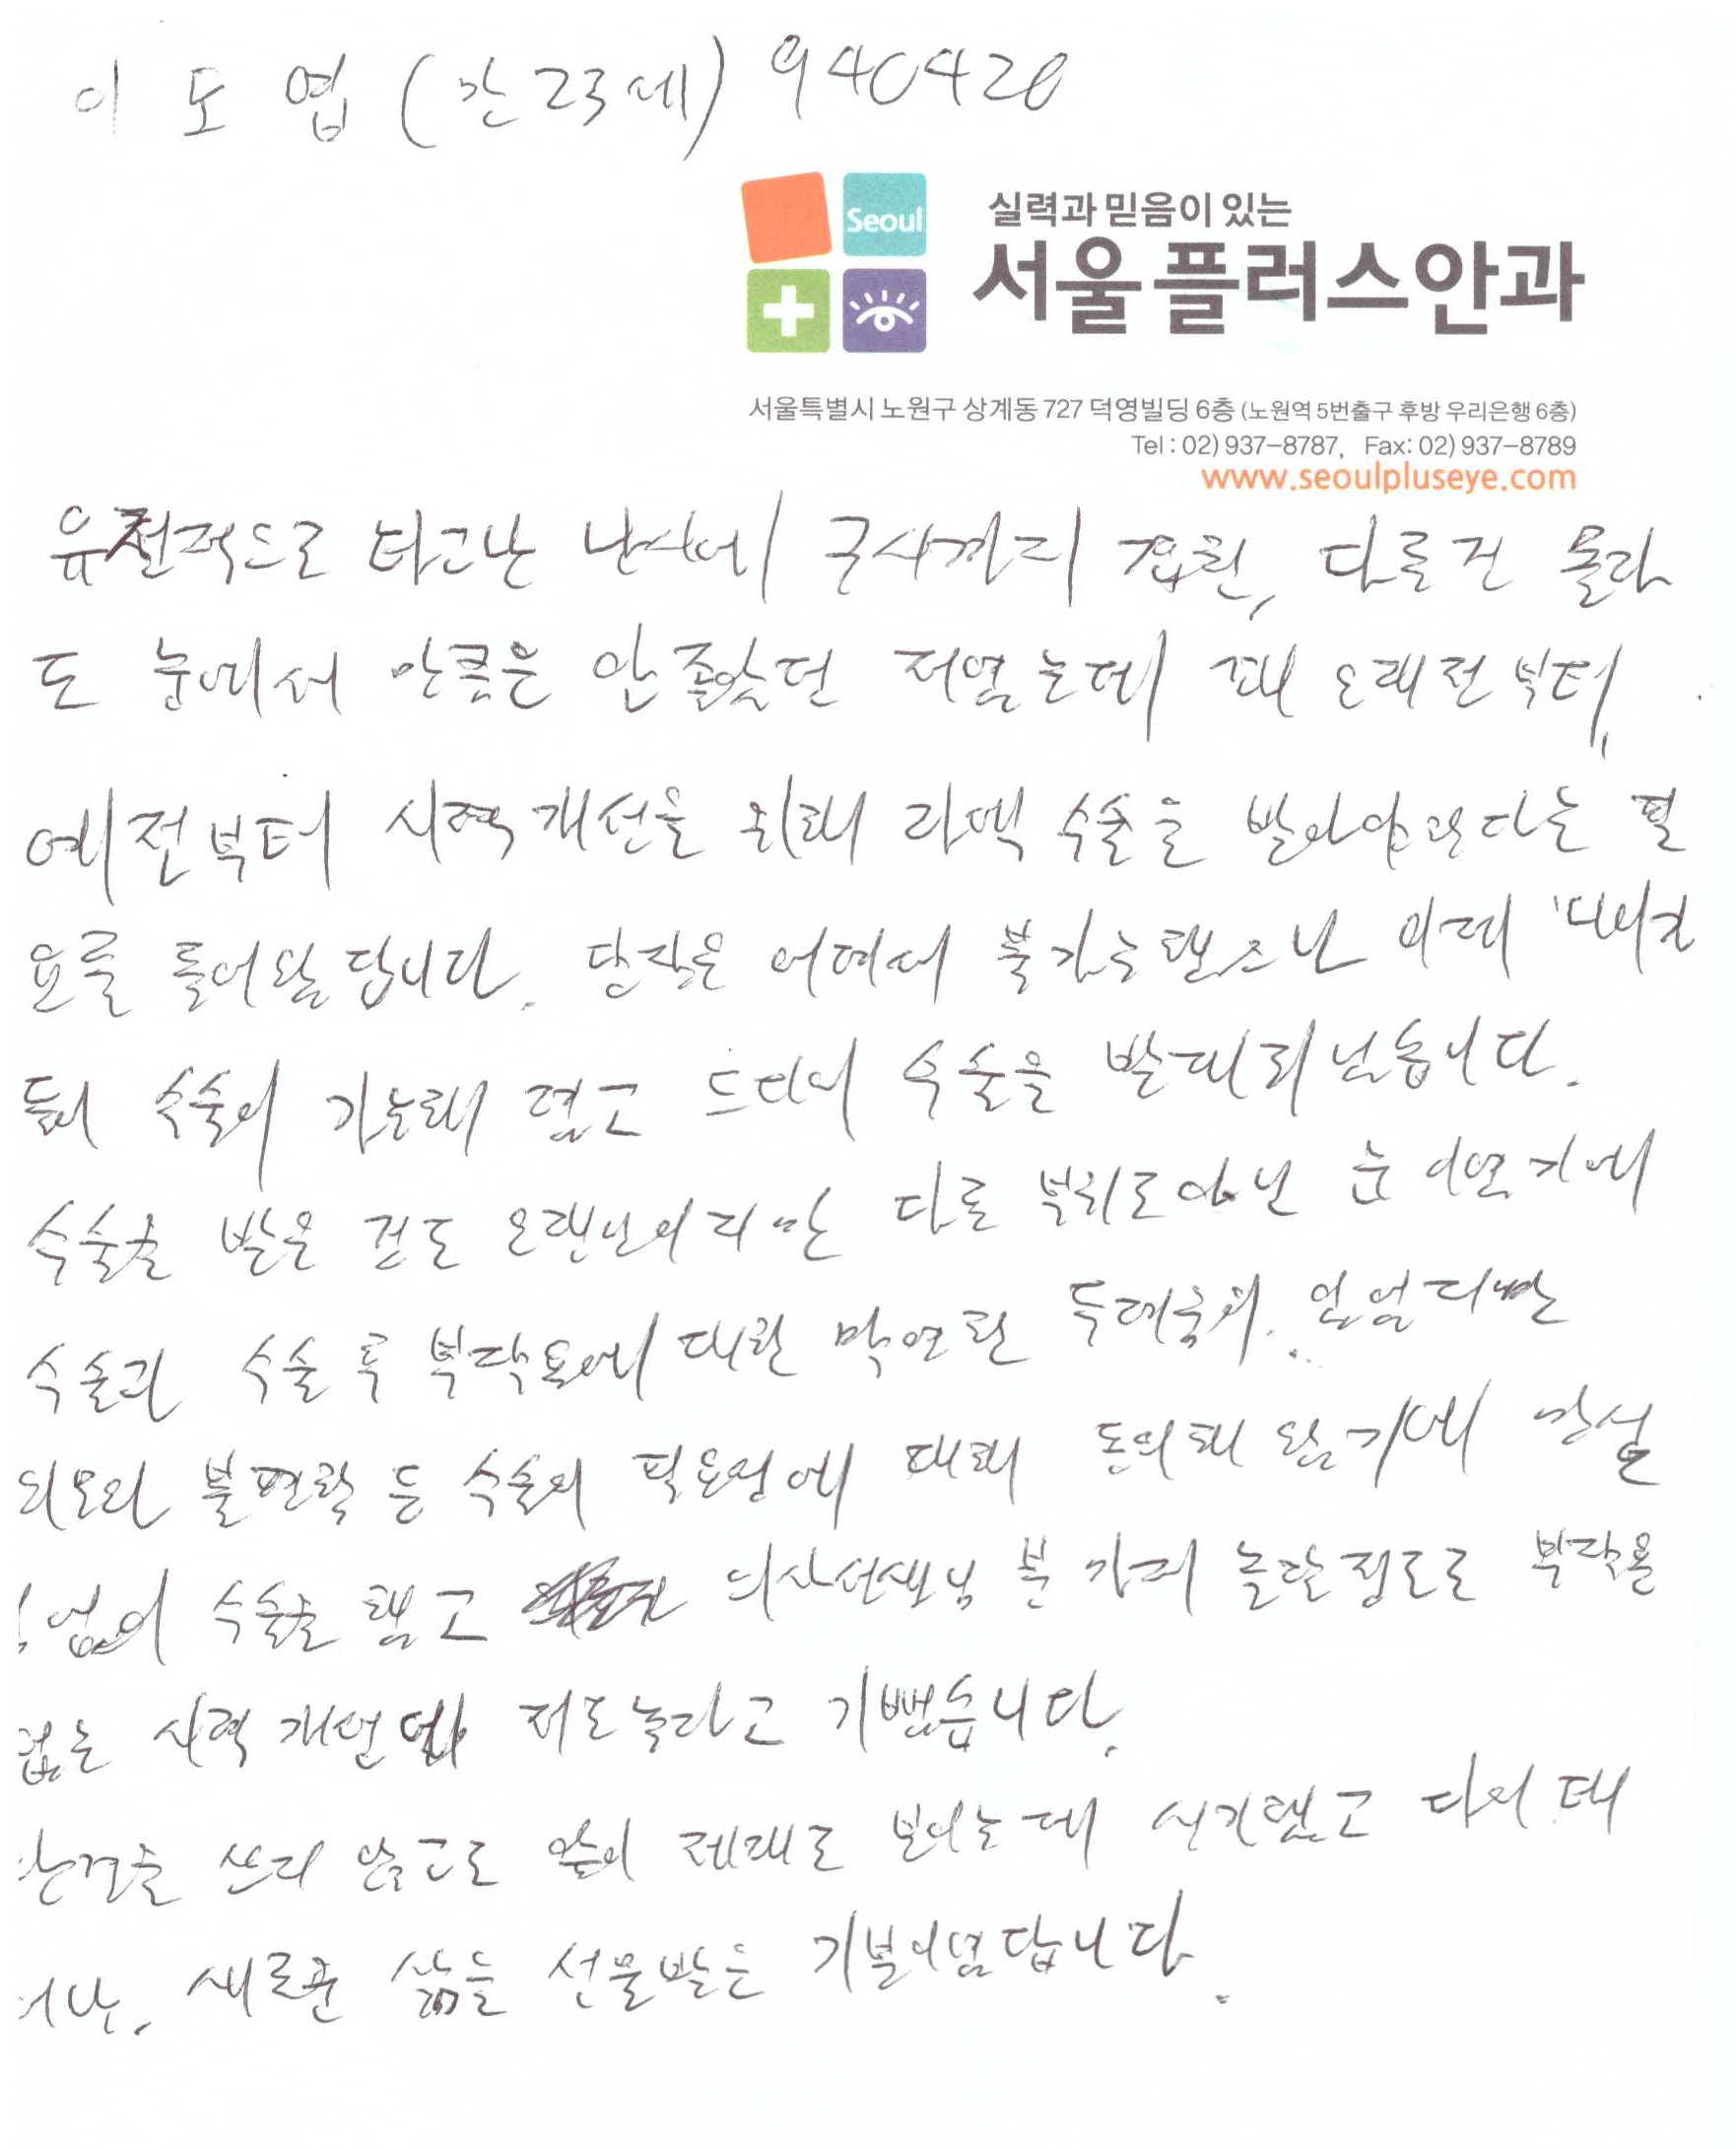 이도엽 (만23세) 940420
Seoul
실력과 믿음이 있는
서울플러스안과
서울특별시 노원구 상계동 727 덕영빌딩 6층 (노원역 5번출구 후방 우리은행 6층)
Tel : 02) 937-8787, Fax: 02) 937-8789
www.seoulpluseye.com
유전적으로 타고난 난시에 근시까지 겹친, 다른건 몰라
도 눈에서 만큼은 안 좋았던 저였는데 꽤 오래전부터,
예전부터 시력개선을 위해 라섹 수술을 받아야한다는 필
요를 들어왔답니다. 당장은 어려서 불가능했으나 이제
돼 수술이 가능해 졌고 드디어 수술을 받게되었습니다.
수술을 받은 것도 오랜만이지만 다른 부위도아닌 눈 이었기에
수술과 수술 후 부작용에 대한 막연한 두려움이. 있었지만
외모와 불편함 등 수술의 필요성에 대해 동의해 왔기에 망설
임없이 수술을 했고 의사선생님 분 까지 놀랄정도로 부작용
없는 시력 개선에 저도놀라고 기뻤습니다.
안경을 쓰지 않고도 앞이 제대로 보이는게 신기했고 다시 태
어나, 새로운 삶을 선물받은 기분이었답니다.